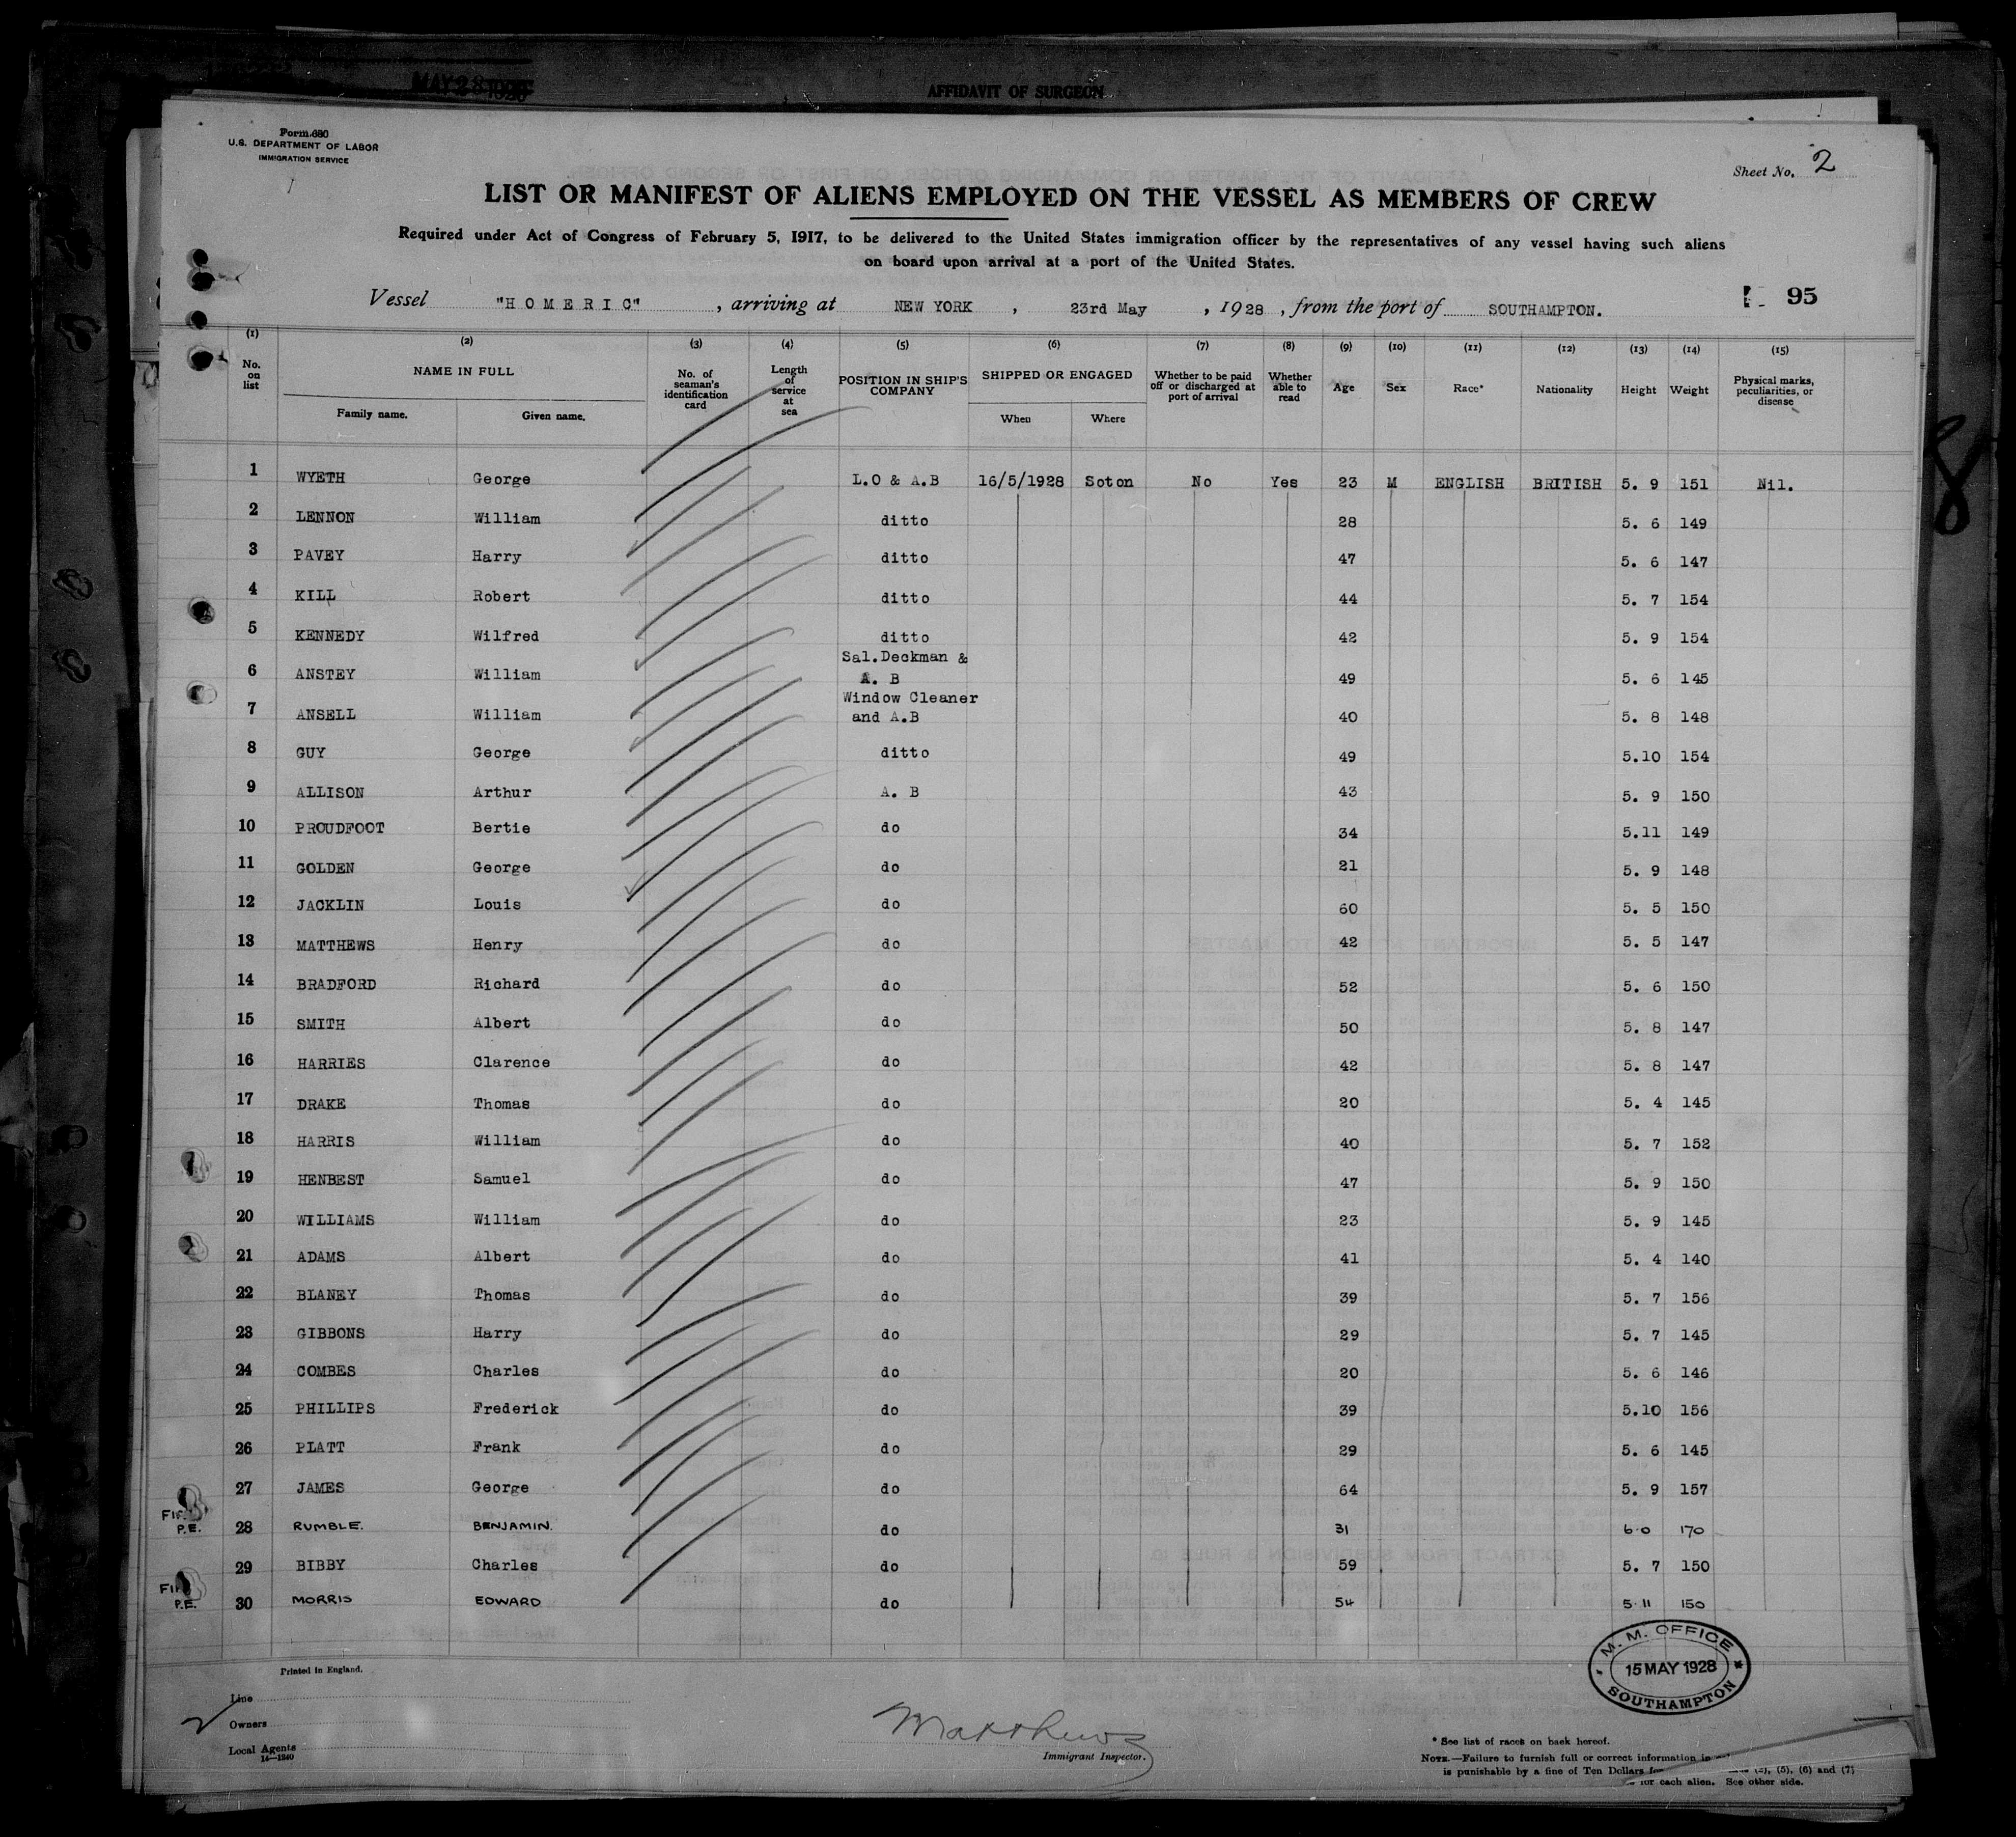 MAY 28 1928
AFFIDAVIT OF SURGEON
Form 680
U.S. DEPARTMENT OF LABOR
IMMIGRATION SERVICE
Sheet No. 2
LIST OR MANIFEST OF ALIENS EMPLOYED ON THE VESSEL AS MEMBERS OF CREW
Required under Act of Congress of February 5, 1917, to be delivered to the United States immigration officer by the representatives of any vessel having such aliens
on board upon arrival at a port of the United States.
Vessel "HOMERIC", arriving at NEW YORK, 23rd May, 1928, from the port of SOUTHAMPTON.
95
(1) (2) (3) (4) (5) (6) (7) (8) (9) (10) (11) (12) (13) (14) (15)
No. on list NAME IN FULL Family name. Given name. No. of seaman's identification card Length of service at sea POSITION IN SHIP'S COMPANY SHIPPED OR ENGAGED When Where Whether to be paid off or discharged at port of arrival Whether able to read Age Sex Race* Nationality Height Weight Physical marks, peculiarities, or disease
1 WYETH George L.O & A.B 16/5/1928 Soton No Yes 23 M ENGLISH BRITISH 5. 9 151 Nil.
2 LENNON William ditto 28 5. 6 149
3 PAVEY Harry ditto 47 5. 6 147
4 KILL Robert ditto 44 5. 7 154
5 KENNEDY Wilfred ditto 42 5. 9 154
6 ANSTEY William Sal.Deckman & A. B 49 5. 6 145
7 ANSELL William Window Cleaner and A.B 40 5. 8 148
8 GUY George ditto 49 5.10 154
9 ALLISON Arthur A. B 43 5. 9 150
10 PROUDFOOT Bertie do 34 5.11 149
11 GOLDEN George do 21 5. 9 148
12 JACKLIN Louis do 60 5. 5 150
13 MATTHEWS Henry do 42 5. 5 147
14 BRADFORD Richard do 52 5. 6 150
15 SMITH Albert do 50 5. 8 147
16 HARRIES Clarence do 42 5. 8 147
17 DRAKE Thomas do 20 5. 4 145
18 HARRIS William do 40 5. 7 152
19 HENBEST Samuel do 47 5. 9 150
20 WILLIAMS William do 23 5. 9 145
21 ADAMS Albert do 41 5. 4 140
22 BLANEY Thomas do 39 5. 7 156
23 GIBBONS Harry do 29 5. 7 145
24 COMBES Charles do 20 5. 6 146
25 PHILLIPS Frederick do 39 5.10 156
26 PLATT Frank do 29 5. 6 145
27 JAMES George do 64 5. 9 157
P.E. 28 RUMBLE. BENJAMIN. do 31 6.0 170
29 BIBBY Charles do 59 5. 7 150
P.E. 30 MORRIS EDWARD do 54 5.11 150
M. M. OFFICE
15 MAY 1928
SOUTHAMPTON
Printed in England.
Line
Owners
Local Agents
14—1240
Matthews
Immigrant Inspector.
* See list of races on back hereof.
NOTE.—Failure to furnish full or correct information in
is punishable by a fine of Ten Dollars for (5), (6) and (7)
for each alien. See other side.
8